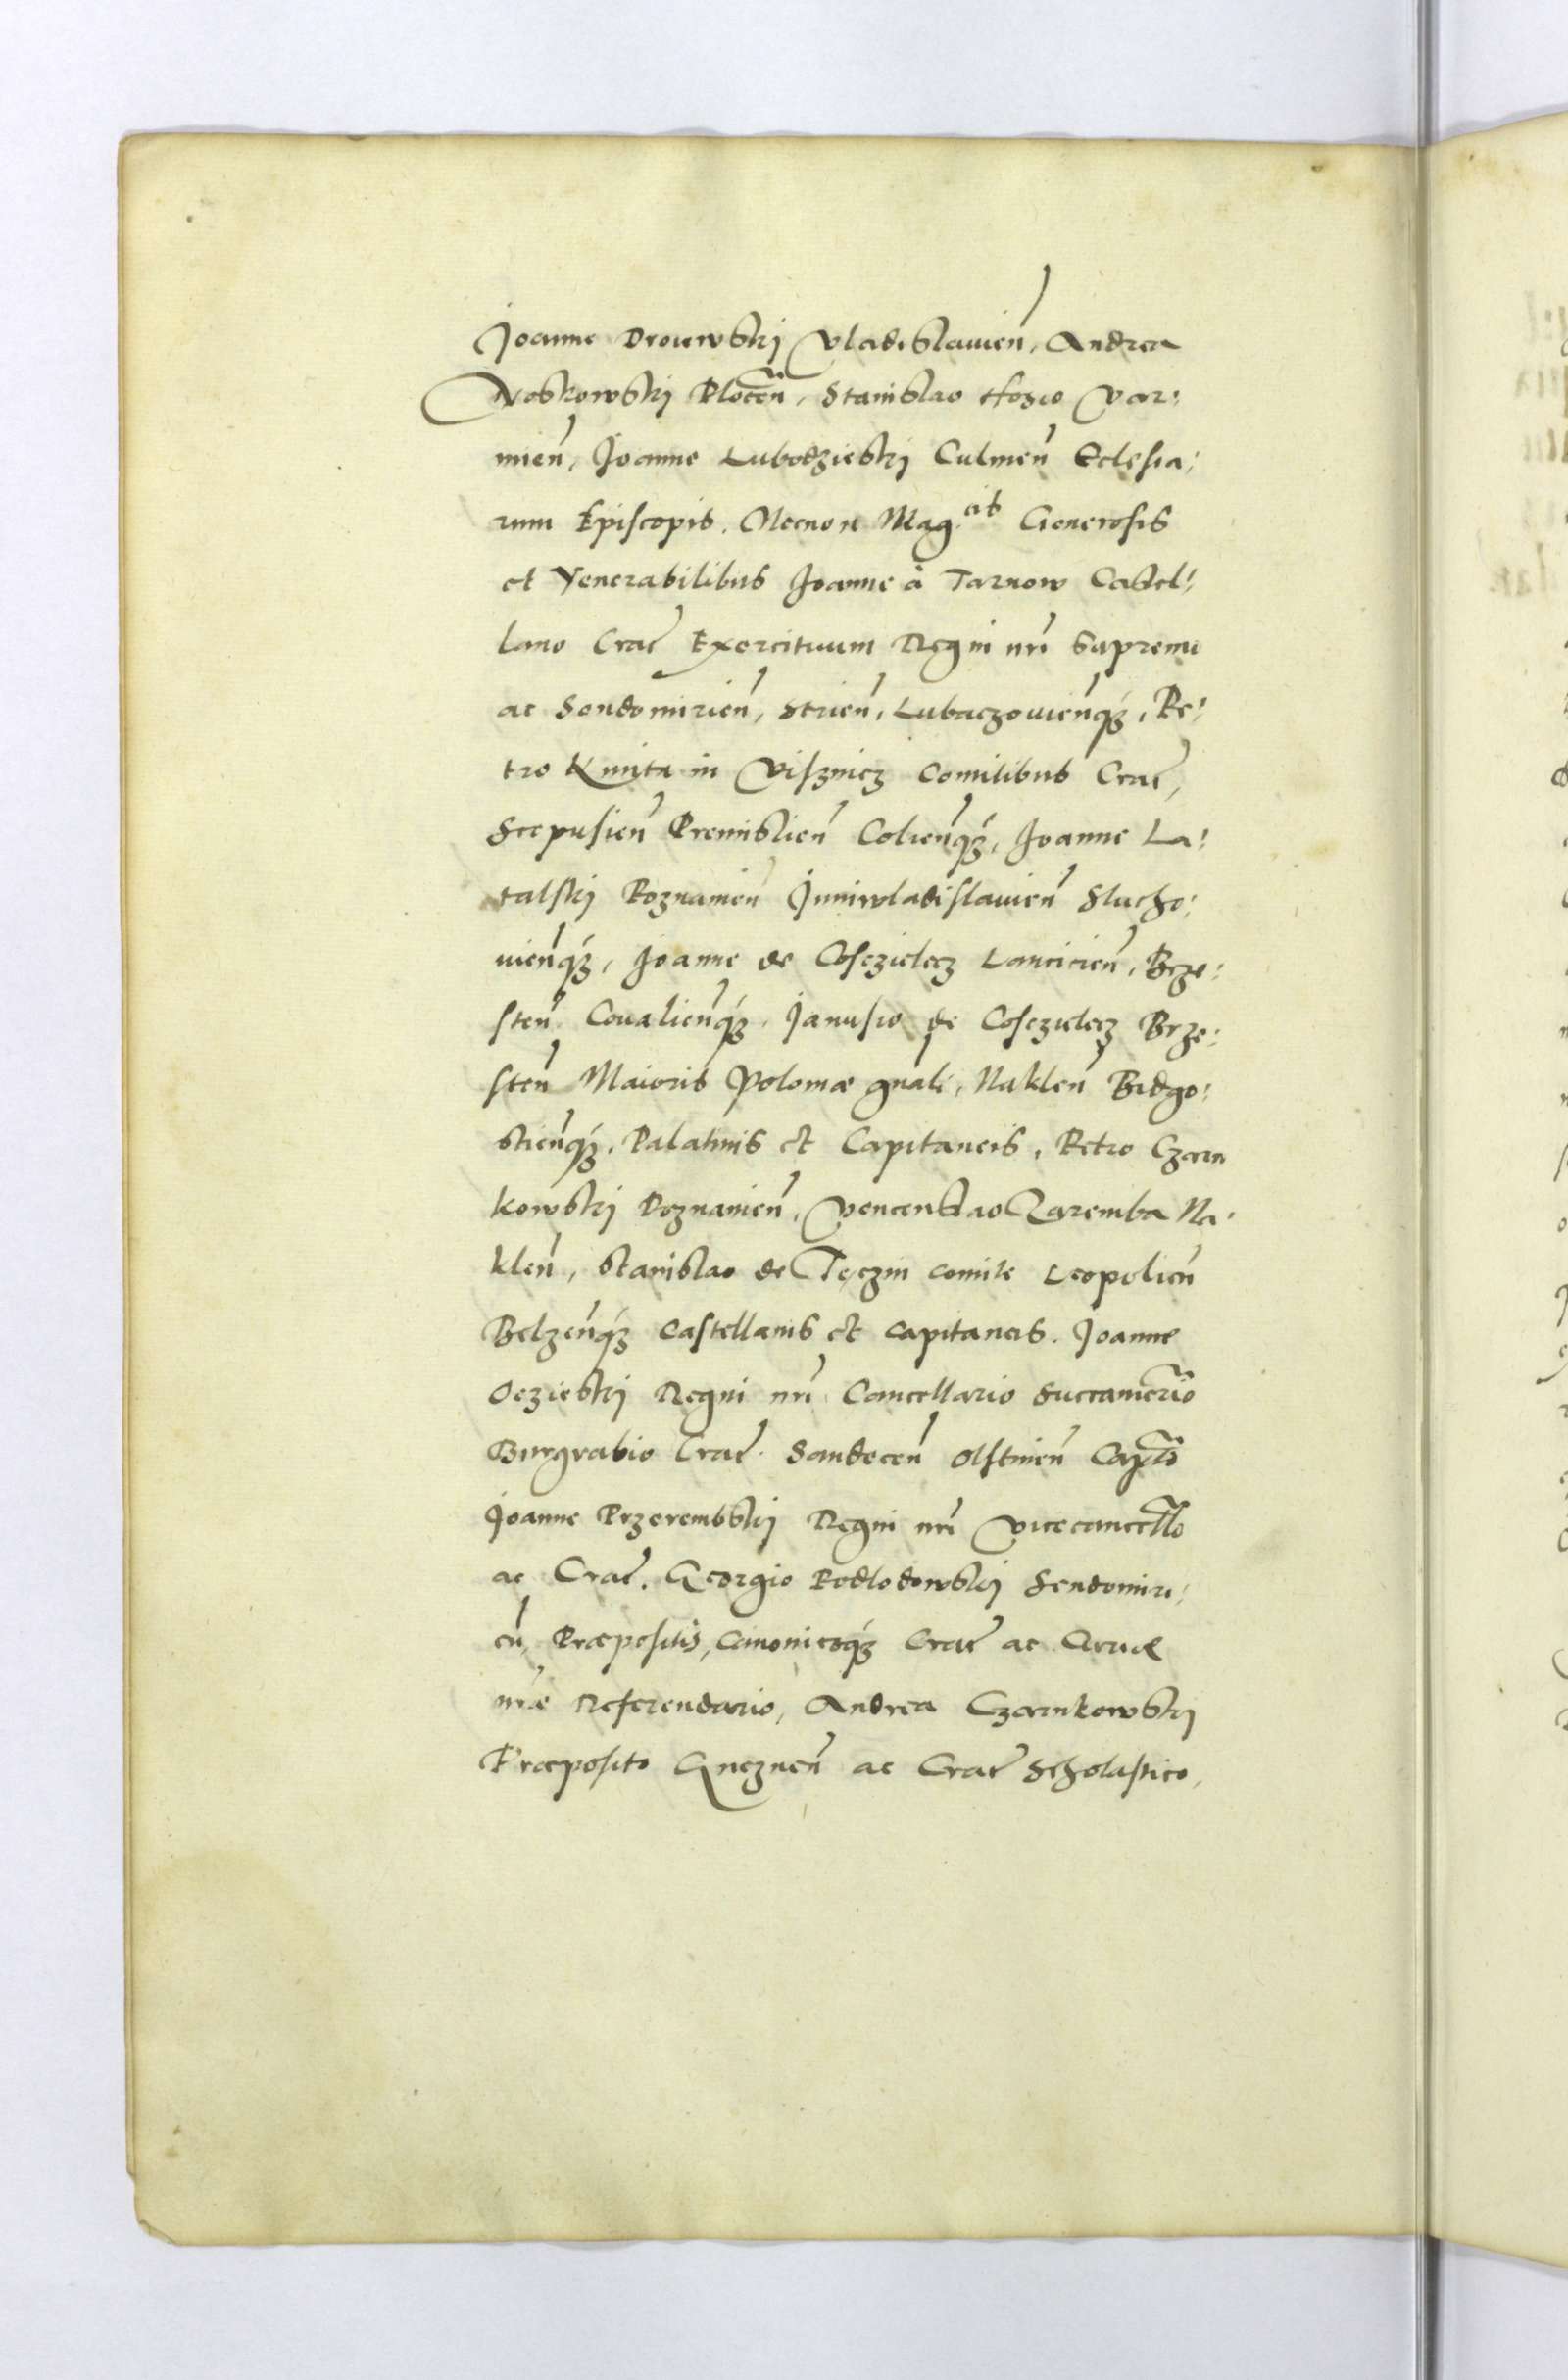 Joanne Drouewskj Vladislauien̄, Andrea
Noskowskj Plocen̄, Stanislao Hozio Var:
mien̄, Joanne Lubodzieskj Culmen̄ Eclesia:
rum Episcopis. Necnon Mag.cis Generosis
et Venerabilibus Joanne à Tarnow Castel:
lano Crac̄ Exercituum Regni nr̄i Supremo
ac Sendomirien̄, Strien̄, Lubaczouien̄qȝ, Pe:
tro Kmita in Visznicz Comitibus Crac̄,
Scepusien̄ Premislien̄ Colien̄qȝ, Joanne La:
talskj Poznanien̄ Juniwladislauien̄ Slucho:
uien̄qȝ, Joanne de Cosczielecz Lancicien̄, Brze:
sten̄ Coualien̄qȝ. Janusio de Cosczielecz Brze:
sten̄ Maioris Poloniæ gn̄ali, Naklen̄ Bidgo:
stien̄qȝ. Palatinis et Capitaneis, Petro Czarn
kowskj Poznanien̄, Vencenslao Zaremba Na:
klen̄, Stanislao de Tęczin comite Leopolien̄
Belzen̄qȝ Castellanis et Capitaneis. Joanne
Oczieskj Regni nr̄i Cancellario Succamer̄io
Burgrabio Crac̄. Sandecen̄ Olstinen̄ Cap̄to
Joanne Przerembskj Regni nr̄i Vicecancell̄o
ac Crac̄. Georgio Podlodowskj Sendomiri:
en̄, Præpositis, Canonicoqȝ Crac̄ ac Curiæ
nr̄æ Referendario, Andrea Czarnkowskj
Præposito Gneznen̄ ac Crac̄ Scholastico,